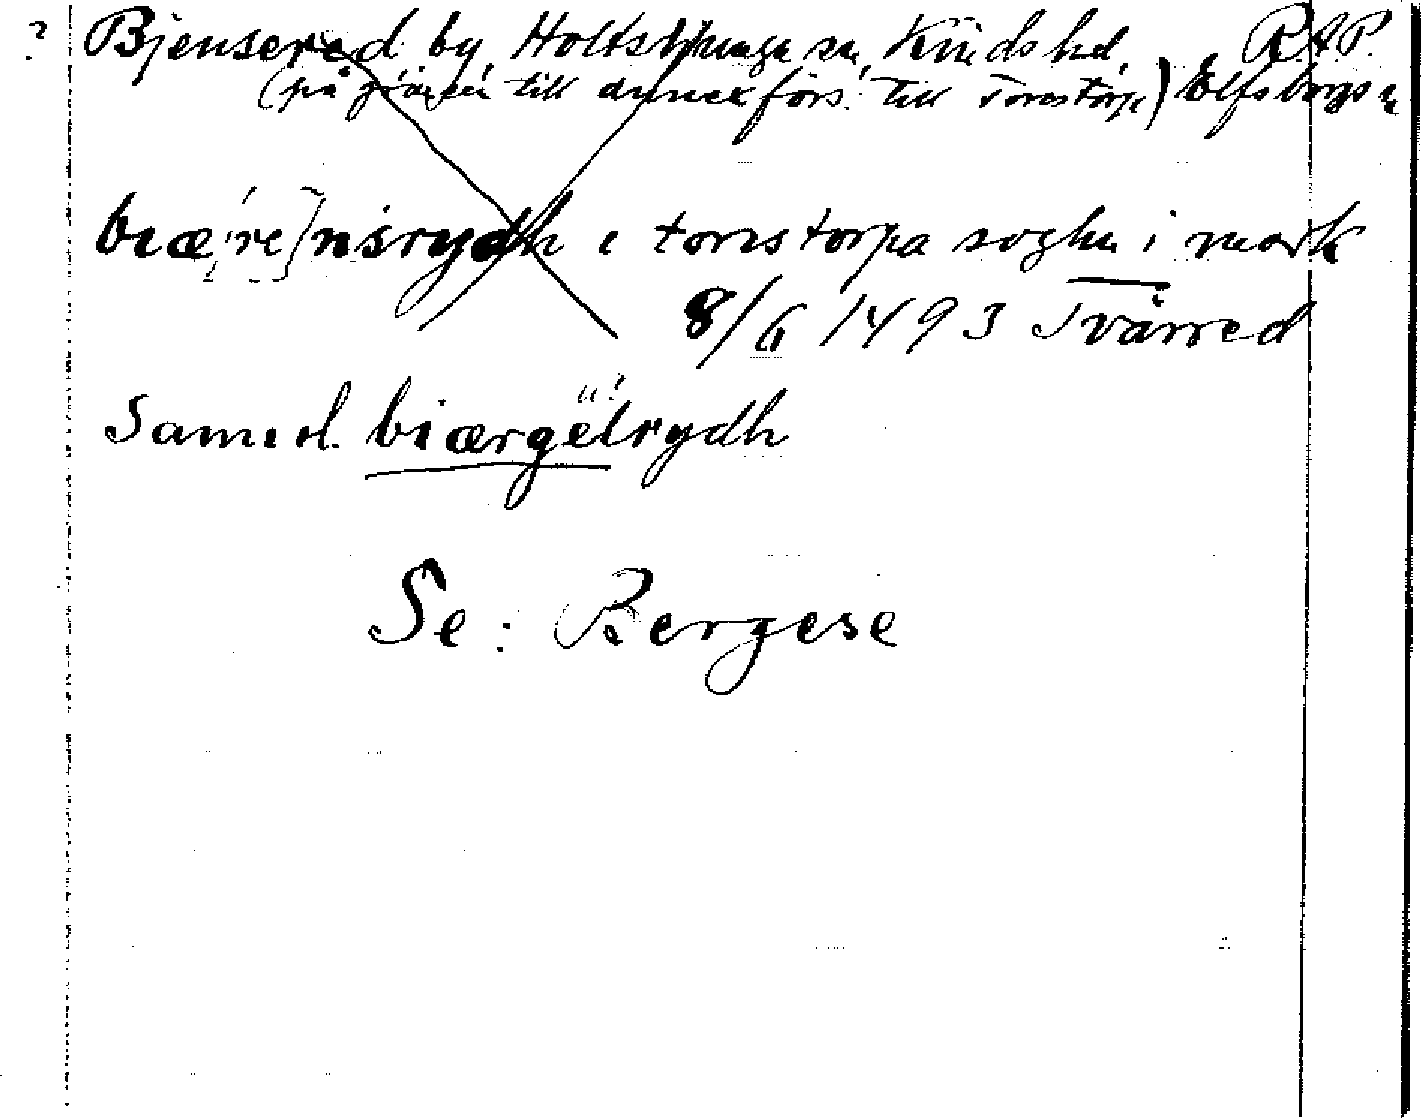 ? Bjensered by, Holtsljunga sn, Kinds hd, R.A.P.
(på gränsen till annexförs. till Torestorp) Elfsborgs l.
biæ[re]nsrydh i torestorpa soghn i mark
8/6 1493 Tvärred
Sam. d. biærgelrydh
u?
Se: Bergese